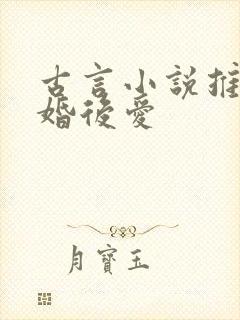 古言小說推
婚後愛
月寶玉